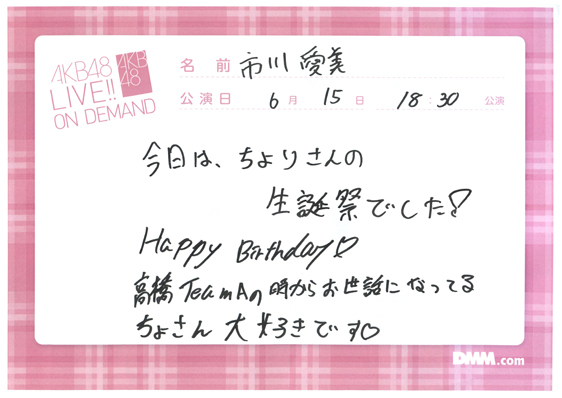 AKB48
LIVE!!
ON DEMAND
AKB
48
名前 市川愛美
公演日 6月 15日 18:30 公演
今日は、ちよりさんの
生誕祭でした♡
Happy Birthday♡
高橋TeamAの時からお世話になってる
ちよさん大好きです♡
DMM.com